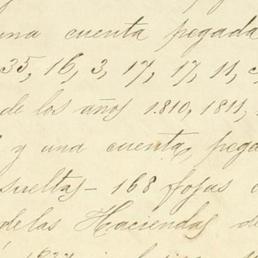 una cuenta pegada
35, 16, 3, 17, 17, 11,
de los años 1.810, 1811,
y una cuenta, pega
sueltas - 168 fojas
de las Haciendas de